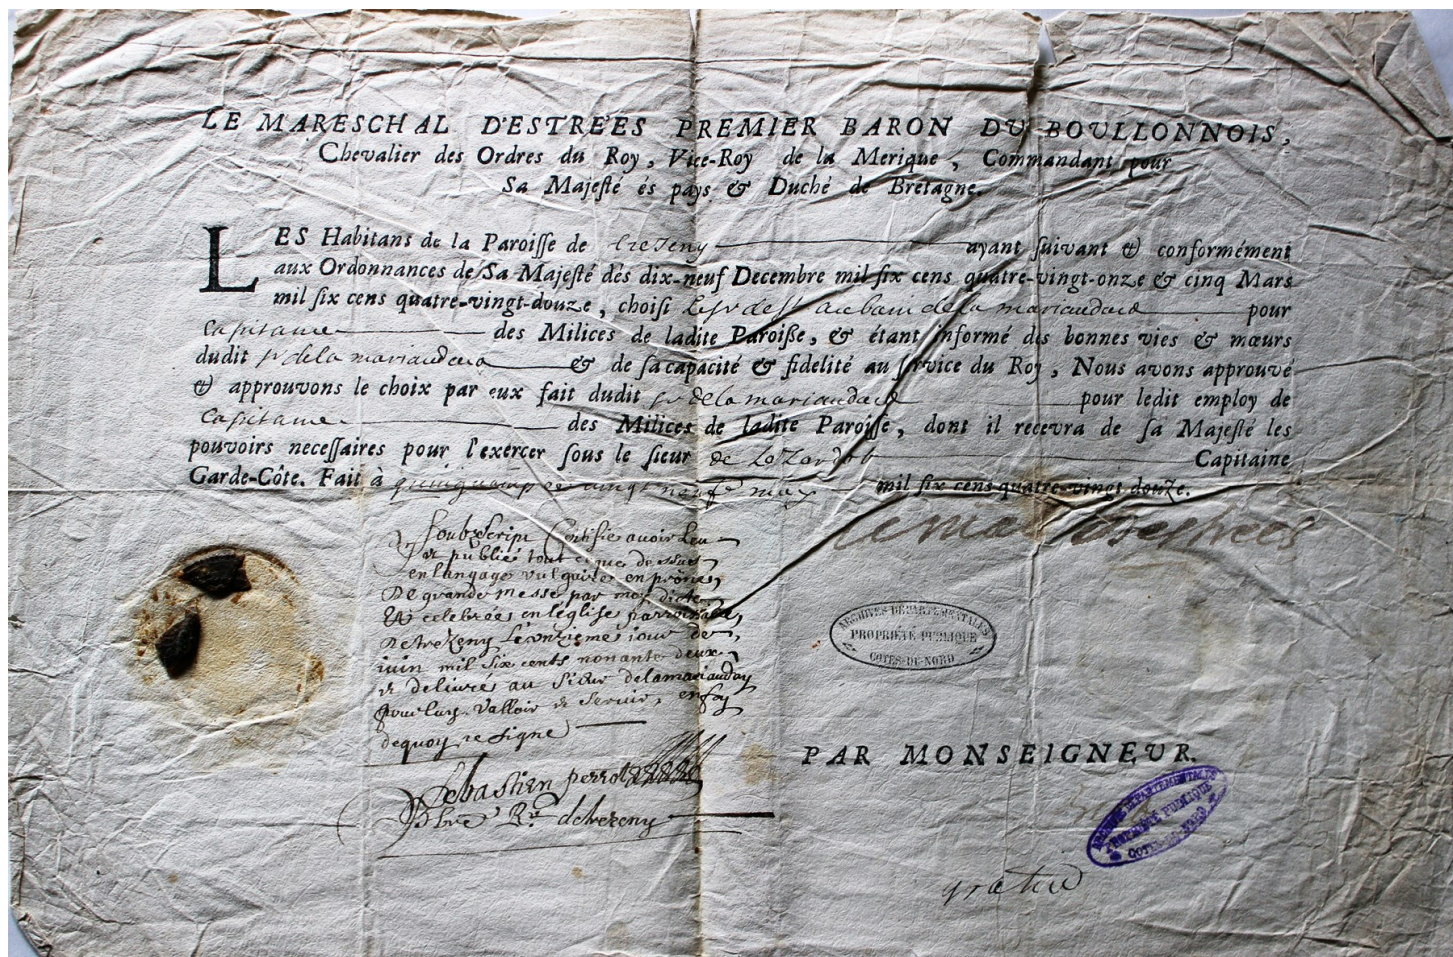 LE MARESCHAL D'ESTRÉES PREMIER BARON DU BOULLONNOIS,
Chevalier des Ordres du Roy, Vice-Roy de la Merique, Commandant pour
Sa Majesté és pays & Duché de Bretagne.
LES Habitans de la Paroisse de trezeny ayant suivant & conformément
aux Ordonnances de Sa Majesté dés dix-neuf Decembre mil six cens quatre-vingt-onze & cinq Mars
mil six cens quatre-vingt-douze, choisi le sr de st aubain de la mariaudaid pour
Capitaine des Milices de ladite Paroisse, & étant informé des bonnes vies & mœurs
dudit sr de la mariaudaid & de sa capacité & fidelité au service du Roy, Nous avons approuvé
& approuvons le choix par eux fait dudit sr de la mariaudaid pour ledit employ de
Capitaine des Milices de ladite Paroisse, dont il recevra de sa Majesté les
pouvoirs necessaires pour l'exercer sous le sieur de Capitaine
Garde-Côte. Fait à quinquemper vingt neufe may mil six cens quatre-vingt douze.
Le mal destrees
Soubzscript Certifie avoir leu
et publié tout ce que dessus
en langage vulguire en prône
de grande messe par moy dicte
et celebrée en l'église parroissialle
de trezeny le onzieme iour de
iuin mil six cents nonante deux
et delivré au sieur delamariauday
pour luy valloir et servir, en foy
dequoy ie signe
Sebastien perrot
Pbre Rr de trezeny
ARCHIVES DÉPARTEMENTALES
PROPRIÉTÉ PUBLIQUE
COTES-DU-NORD
PAR MONSEIGNEUR.
ARCHIVES DÉPARTEMENTALES
PROPRIÉTÉ PUBLIQUE
COTES-DU-NORD
gratis